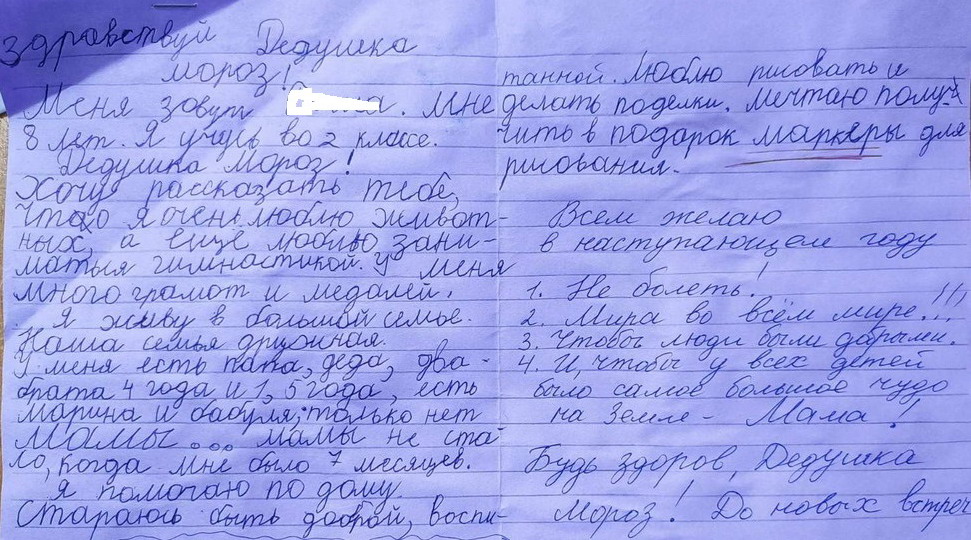 Здравствуй Дедушка
Мороз!
Меня зовут . Мне
8 лет. Я учусь во 2 классе.
Дедушка Мороз!
Хочу рассказать тебе,
что я очень люблю живот-
ных, а ещё люблю зани-
маться гимнастикой. У меня
много грамот и медалей.
Я живу в большой семье.
Наша семья дружная.
У меня есть папа, деда, два-
брата 4 года и 1,5 года, есть
Марина и бабуля, только нет
МАМЫ... мамы не ста-
ло, когда мне было 7 месяцев.
Я помогаю по дому.
Стараюсь быть доброй, воспи-
танной. Люблю рисовать и
делать поделки. Мечтаю полу-
чить в подарок маркеры для
рисования.
Всем желаю
в наступающем году
1. Не болеть!
2. Мира во всём мире!!!
3. Чтобы люди были добрыми.
4. И, чтобы у всех детей
было самое большое чудо
на Земле - Мама!
Будь здоров, Дедушка
Мороз! До новых встреч